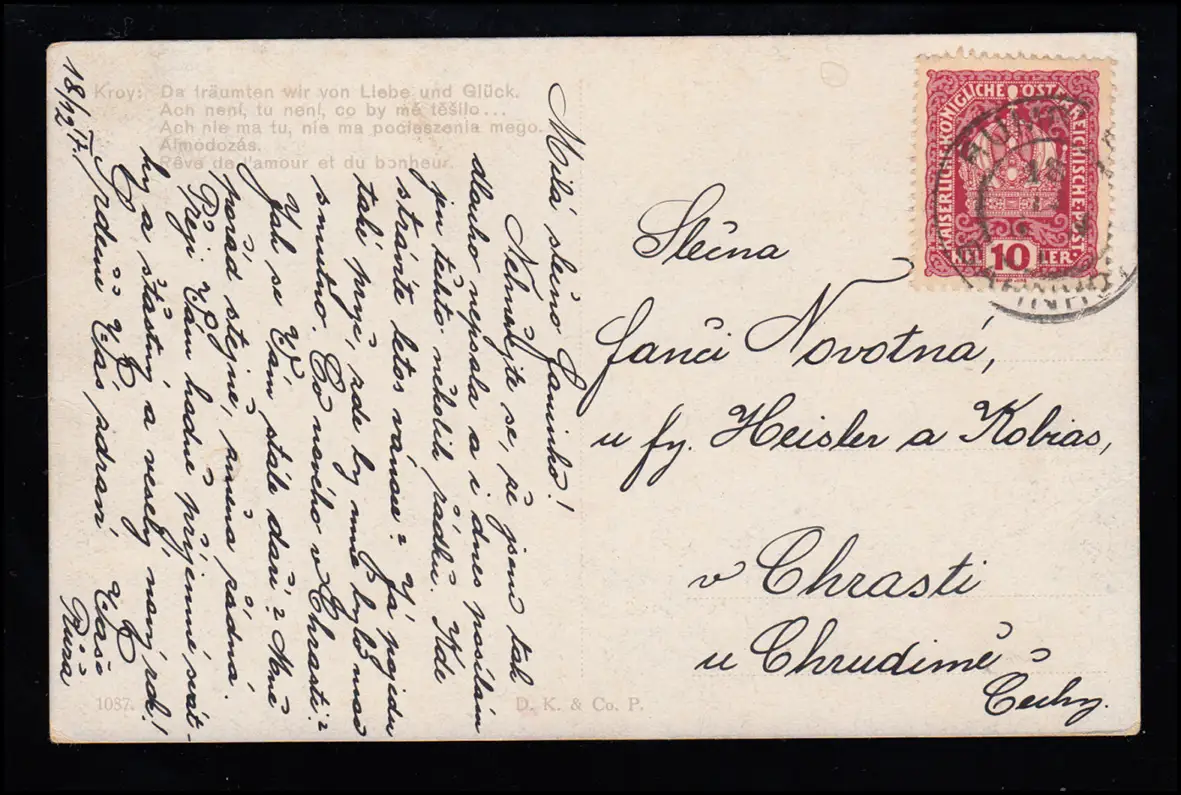 Kroy: Da träumten wir von Liebe und Glück.
Ach není, tu není, co by mě těšilo...
Ach nie ma tu, nie ma pocieszenia mego.
Álmodozás.
Rêve de l'amour et du bonheur.
18/12 17.
Milá slečno Janinko!
Nehněvejte se, že jsem tak
dlouho nepsala a i dnes posílám
jen těchto několik řádků. Kde
strávíte letos vánoce? Já pojedu
také pryč, zde by mně bylo moc
smutno. Co nového v Chrasti?
Jak se Vám stále daří? Mně
pořád stejně, změna žádná.
Přeji Vám hodně příjemné svát-
ky a šťastný a veselý nový rok!
Srdečně Vás zdraví Vaše
Růža
1087.
D. K. & Co. P.
KAISERLICHE KÖNIGLICHE ÖSTERREICHISCHE POST
10 HELLER
18
Slečna
Janči Novotná,
u fy. Heisler a Kobias,
v Chrasti
u Chrudimě
Čechy.